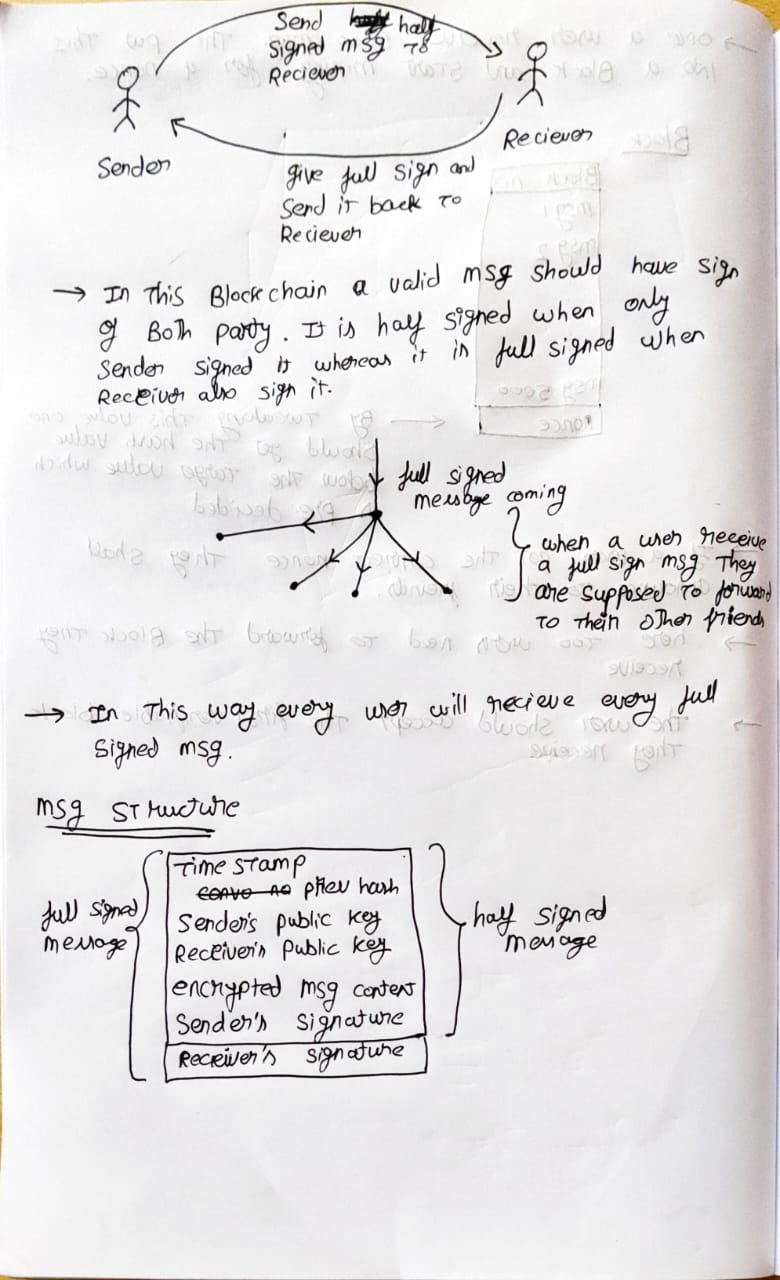 Send half
signed msg to
Reciever
Sender
Reciever
give full sign and
Send it back to
Reciever
→ In This Blockchain a valid msg should have sign
of Both party. It is half signed when only
Sender signed it whereas it is full signed when
Receiver also sign it.
full signed
message coming
when a user receive
a full sign msg They
are supposed to forward
to their other friends
→ In This way every user will recieve every full
signed msg.
msg structure
Time stamp
prev hash
Sender's public key
Receiver's Public key
encrypted msg content
Sender's signature
Receiver's signature
full signed
message
half signed
message